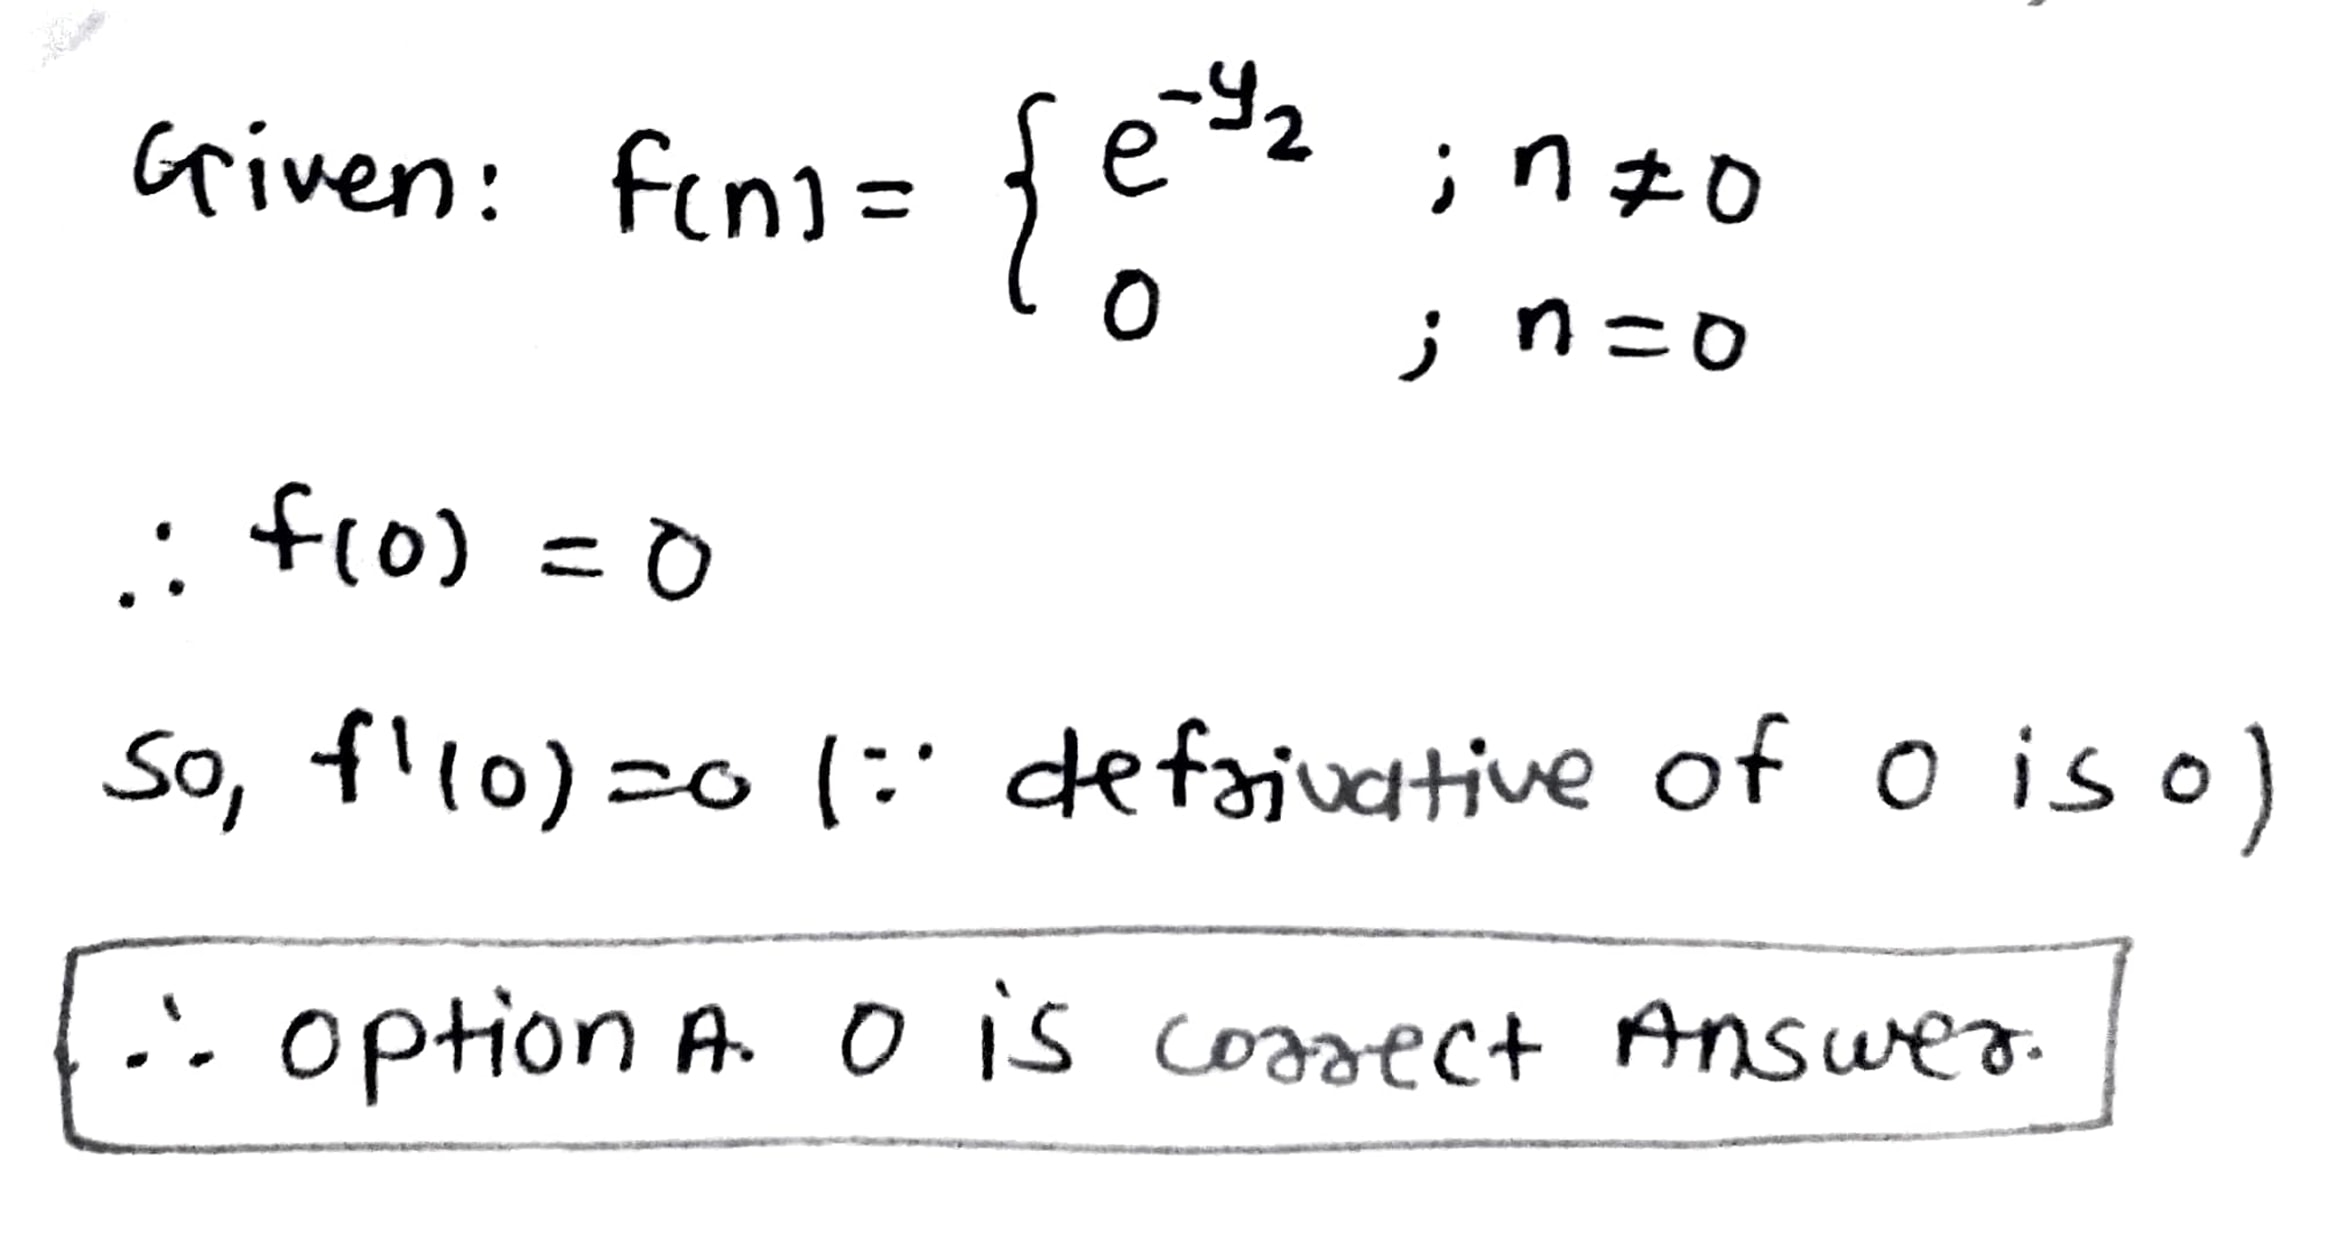 Given: f(n) = { e^-y2 ; n ≠ 0
0 ; n = 0
∴ f(0) = 0
So, f'(0) = 0 (∵ defrivative of 0 is 0)
∴ option A. 0 is correct Answer.